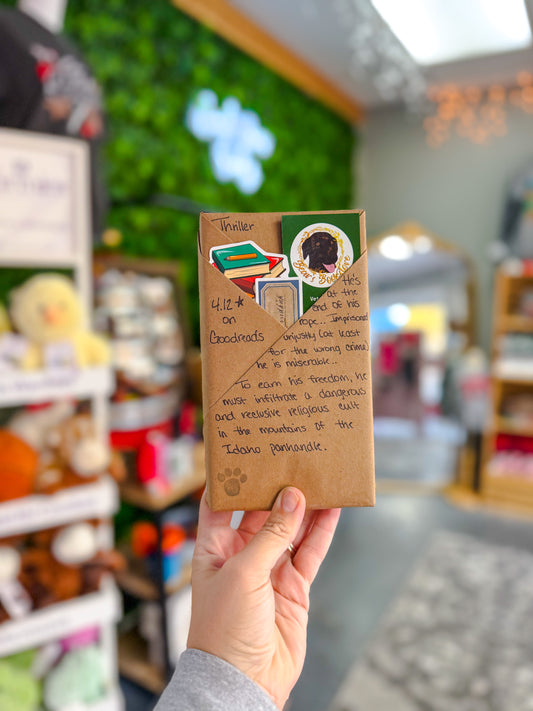 Thriller
4.12★
on
Goodreads
He's
at the
end of his
rope... Imprisoned
unjustly (at least
for the wrong crime)
he is miserable...
To earn his freedom, he
must infiltrate a dangerous
and reclusive religious cult
in the mountains of the
Idaho panhandle.